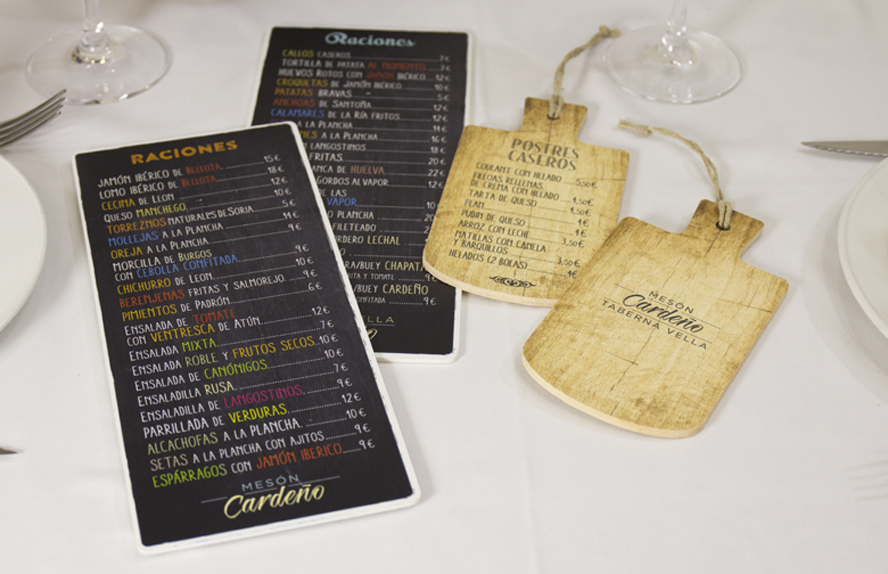 RACIONES
JAMÓN IBÉRICO DE BELLOTA 15€
LOMO IBÉRICO DE BELLOTA 18€
CECINA DE LEON 12€
QUESO MANCHEGO 10€
TORREZNOS NATURALES DE SORIA 5€
MOLLEJAS A LA PLANCHA 14€
OREJA A LA PLANCHA 9€
MORCILLA DE BURGOS
CON CEBOLLA CONFITADA 9€
CHICHURRO DE LEON 10€
BERENJENAS FRITAS Y SALMOREJO 9€
PIMIENTOS DE PADRÓN 6€
ENSALADA DE TOMATE
CON VENTRESCA DE ATÚN 12€
ENSALADA MIXTA 7€
ENSALADA ROBLE Y FRUTOS SECOS 10€
ENSALADA DE CANÓNIGOS 10€
ENSALADILLA RUSA 7€
ENSALADILLA DE LANGOSTINOS 9€
PARRILLADA DE VERDURAS 12€
ALCACHOFAS A LA PLANCHA 10€
SETAS A LA PLANCHA CON AJITOS 9€
ESPÁRRAGOS CON JAMÓN IBERICO 9€
MESÓN
Cardeño
Raciones
CALLOS CASEROS 7€
TORTILLA DE PATATA AL MOMENTO 7€
HUEVOS ROTOS CON JAMÓN IBÉRICO 12€
CROQUETAS DE JAMÓN IBÉRICO 10€
PATATAS BRAVAS 5€
ANCHOAS DE SANTOÑA 12€
CALAMARES DE LA RÍA FRITOS 12€
A LA PLANCHA 14€
A LA PLANCHA 16€
Y LANGOSTINOS 18€
FRITAS 20€
BLANCA DE HUELVA 22€
GORDOS AL VAPOR 12€
DE LAS
VAPOR 10€
PLANCHA 20
FILETEADO
CORDERO LECHAL
/BUEY CHAPATA
Y TOMATE 9€
/BUEY CARDEÑO
CONFITADA 9€
VELLA
POSTRES
CASEROS
COULANT CON HELADO 5,50€
RELLENAS
DE CREMA CON HELADO 4,50€
TARTA DE QUESO 4,50€
FLAN 4€
PUDIN DE QUESO 4€
ARROZ CON LECHE 3,50€
CON CANELA
Y BARQUILLOS 3,50€
HELADOS (2 BOLAS) 4€
MESÓN
Cardeño
TABERNA VELLA